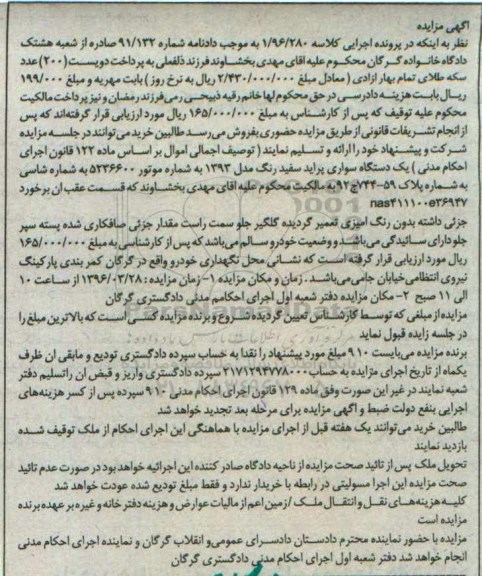 آگهی مزایده
نظر به اینکه در پرونده اجرایی کلاسه ۱/۹۶/۲۸۰ به موجب دادنامه شماره ۹۱/۱۳۲ صادره از شعبه هشتک
دادگاه خانواده گرگان محکوم علیه اقای مهدی بخشاوند فرزند ذلفعلی به پرداخت دویست (۲۰۰) عدد
سکه طلای تمام بهار ازادی (معادل مبلغ ۲/۴۳۰/۰۰۰/۰۰۰ ریال به نرخ روز) بابت مهریه و مبلغ ۱۹۹/۰۰۰
ریال بابت هزینه دادرسی در حق محکوم لها خانم رقیه ذبیحی رمی فرزند رمضان و نیز پرداخت مالکیت
محکوم علیه توقیف که پس از کارشناس به مبلغ ۱۶۵/۰۰۰/۰۰۰ ریال مورد ارزیابی قرار گرفته اند که پس
از انجام تشریفات قانونی از طریق مزایده حضوری بفروش می رسد طالبین خرید می توانند در جلسه مزایده
شرکت و پیشنهاد خود را ارائه و تسلیم نمایند (توصیف اجمالی اموال بر اساس ماده ۱۲۲ قانون اجرای
احکام مدنی) یک دستگاه سواری پراید سفید رنگ مدل ۱۳۹۳ به شماره موتور ۵۲۳۶۶۰۰ به شماره شاسی
به شماره پلاک ۵۹-۷۴۴ج۹۲ به مالکیت محکوم علیه اقای مهدی بخشاوند که قسمت عقب ان برخورد
nas۴۱۱۱۰۰e۳۶۹۴۷
جزئی داشته بدون رنگ امیزی تعمیر گردیده گلگیر جلو سمت راست مقدار جزئی صافکاری شده پسته سپر
جلو دارای سائیدگی می باشد و وضعیت خودرو سالم می باشد که پس از کارشناسی به مبلغ ۱۶۵/۰۰۰/۰۰۰
ریال مورد ارزیابی قرار گرفته است که نشانی محل نگهداری خودرو واقع در گرگان کمر بندی پارکینگ
نیروی انتظامی خیابان جامی می باشد. زمان و مکان مزایده ۱- زمان مزایده : ۱۳۹۶/۰۳/۲۸ از ساعت ۱۰
الی ۱۱ صبح ۲- مکان مزایده دفتر شعبه اول اجرای احکامم مدنی دادگستری گرگان
مزایده از مبلغی که توسط کارشناس تعیین گردیده شروع و برنده مزایده کسی است که بالاترین مبلغ را
در جلسه زایده قبول نماید
برنده مزایده می بایست ۱۰٪ مبلغ مورد پیشنهاد را نقدا به حساب سپرده دادگستری تودیع و مابقی ان ظرف
یکماه از تاریخ اجرای مزایده به حساب ۲۱۷۱۲۹۴۷۷۸۰۰۰ سپرده دادگستری واریز و قبض ان را تسلیم دفتر
شعبه نمایند در غیر این صورت وفق ماده ۱۲۹ قانون اجرای احکام مدنی ۱۰٪ سپرده پس از کسر هزینه های
اجرایی بنفع دولت ضبط و آگهی مزایده برای مرحله بعد تجدید خواهد شد
طالبین خرید می توانند یک هفته قبل از اجرای مزایده با هماهنگی این اجرای احکام از ملک توقیف شده
بازدید نمایند
تحویل ملک پس از تائید صحت مزایده از ناحیه دادگاه صادر کننده این اجرائیه خواهد بود در صورت عدم تائید
صحت مزایده این اجرا مسولیتی در رابطه با خریدار ندارد و فقط مبلغ تودیع شده عودت خواهد شد
کلیه هزینه های نقل و انتقال ملک / زمین اعم از مالیات عوارض و هزینه دفتر خانه و غیره بر عهده برنده
مزایده است
مزایده با حضور نماینده محترم دادستان دادسرای عمومی و انقلاب گرگان و نماینده اجرای احکام مدنی
انجام خواهد شد دفتر شعبه اول اجرای احکام مدنی دادگستری گرگان